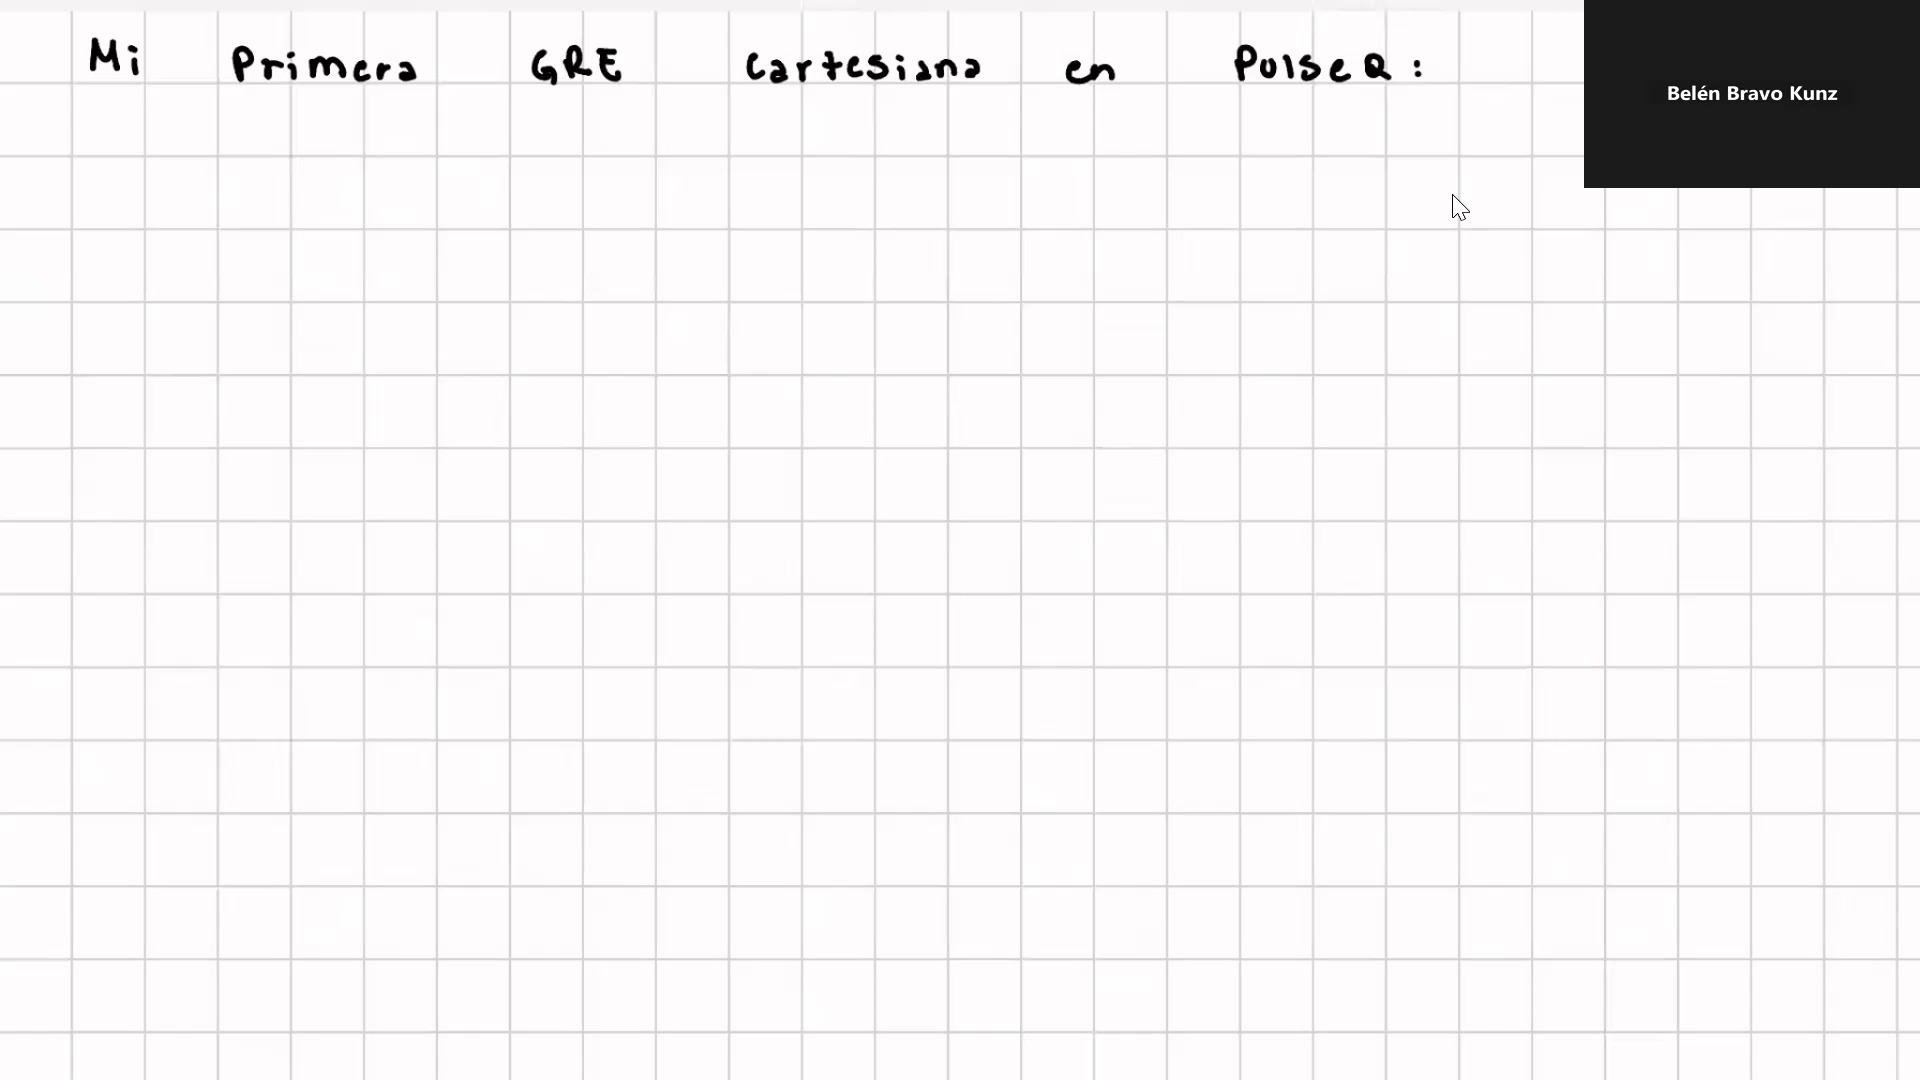 Mi Primera GRE Cartesiana en PulseQ:
Belén Bravo Kunz